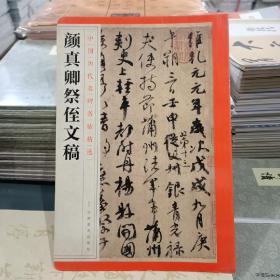 中国历代名碑名帖精选
颜真卿祭侄文稿
維乾元元年歲次戊戌九月庚
午朔三日壬申第十三叔銀青光祿
夫使持節蒲州諸軍事蒲州
刺史上輕車都尉丹楊縣開國